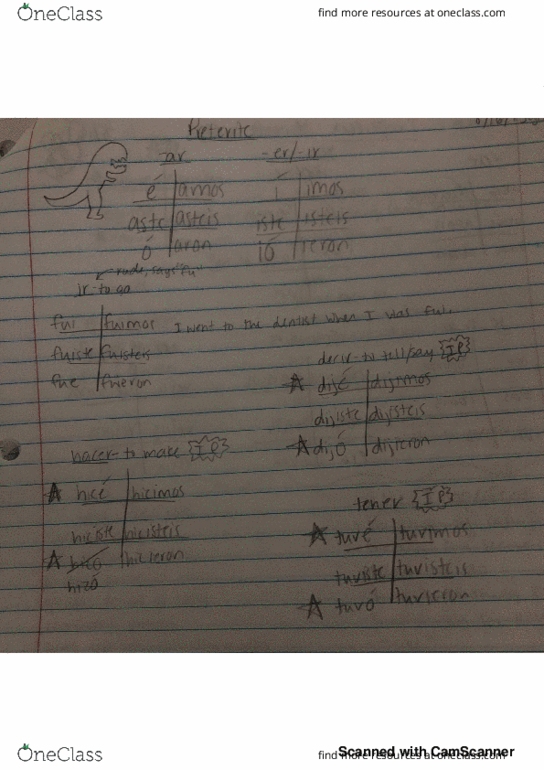 OneClass find more resources at oneclass.com
Preterite
-ar -er/-ir
é amos í imos
aste asteis iste isteis
ó aron ió ieron
rude, says "fu"
Ir-to go
fui fuimos I went to the dentist when I was
fuiste fuisteis
fue fueron
decir-to tell/say IP
dijé dijimos
dijiste dijisteis
dijó dijieron
hacer-to make IP
hicé hicimos
hiciste hicisteis
hicó hicieron
hizó
tener IP
tuvé tuvimos
tuviste tuvisteis
tuvó tuvieron
OneClass find more resources at oneclass.com
Scanned with CamScanner